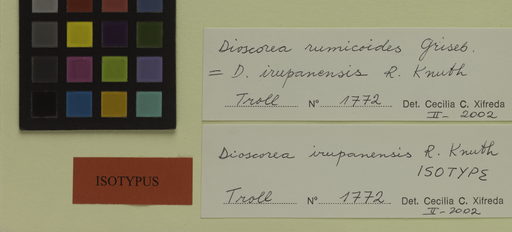 Dioscorea rumicoides Griseb.
= D. irupanensis R. Knuth
Troll Nº 1772 Det. Cecilia C. Xifreda
II - 2002
Dioscorea irupanensis R. Knuth
ISOTYPE
Troll Nº 1772 Det. Cecilia C. Xifreda
II - 2002
ISOTYPUS